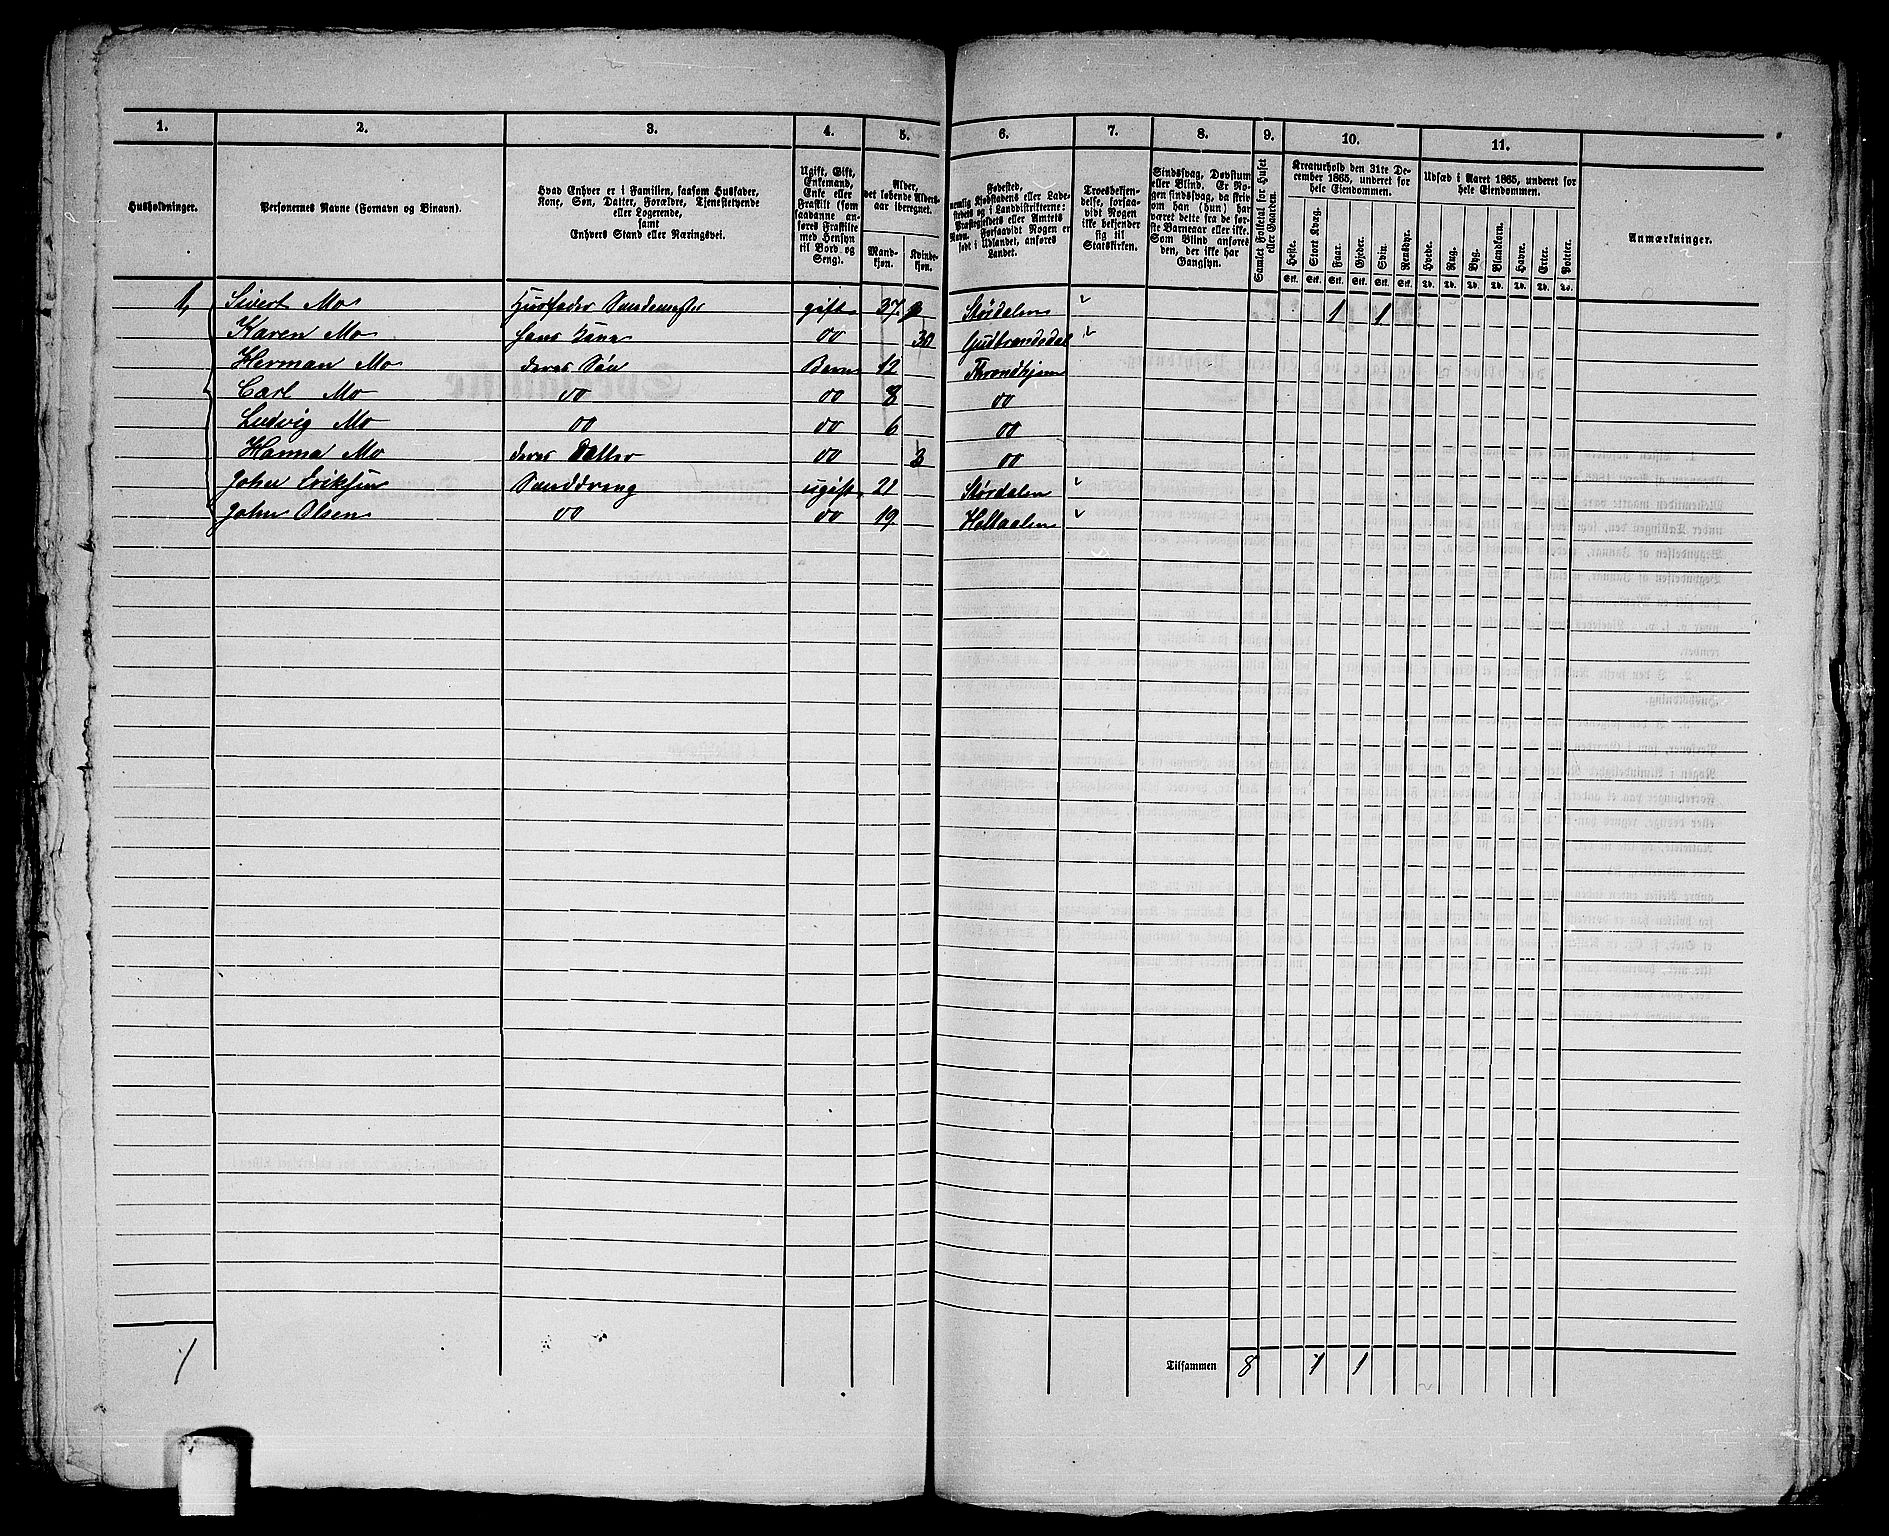 1. 2. 3. 4. 5. 6. 7. 8. 9. 10. 11.
Husholdninger.
Personernes Navne (Fornavn og Binavn).
Hvad Enhver er i Familien, saasom Husfader, Kone, Søn, Datter, Forældre, Tjenestetyende eller Logerende, samt Enhvers Stand eller Næringsvei.
Ugift, Gift, Enkemand, Enke eller Fraskilt (som saadanne anføres Fraskilte med Hensyn til Bord og Seng).
Alder, det løbende Alders-aar iberegnet.
Mandkjøn. Kvindekjøn.
Fødested, nemlig Kjøbstadens eller Ladestedets og i Landdistrikterne: Præstegjeldets eller Amtets Navn. Forsaavidt Nogen er født i Udlandet, anføres Landet.
Troesbekjendelse, forsaavidt Nogen ikke bekjender sig til Statskirken.
Sindssvag, Døvstum eller Blind. Er Nogen sindssvag, da skrives om han (hun) har været dette fra de første Barneaar eller ikke. Som Blind anføres den, der ikke har Gangsyn.
Samlet Folketal for Huset eller Gaarden.
Kreaturhold den 31te December 1865, underet for hele Eiendommen.
Heste. Stort Kvæg. Faar. Gjeder. Svin. Rensdyr.
Udsæd i Aaret 1865, underet for hele Eiendommen.
Hvede. Rug. Byg. Blandkorn. Havre. Erter. Poteter.
Anmærkninger.
Stk. Stk. Stk. Stk. Stk. Stk. Td. Td. Td. Td. Td. Td. Td.
1, Sivert Mo Husfader gift 37 Størdalen 1 1
Karen Mo hans Kone do 30 Gudbrandsdal
Herman Mo deres Søn Barn 12 Throndhjem
Carl Mo do do 8 do
Ludvig Mo do do 6 do
Hanna Mo deres Datter do 3 do
John Eriksen ugift 21 Størdalen
John Olsen do do 19
1 Tilsammen 8 1 1